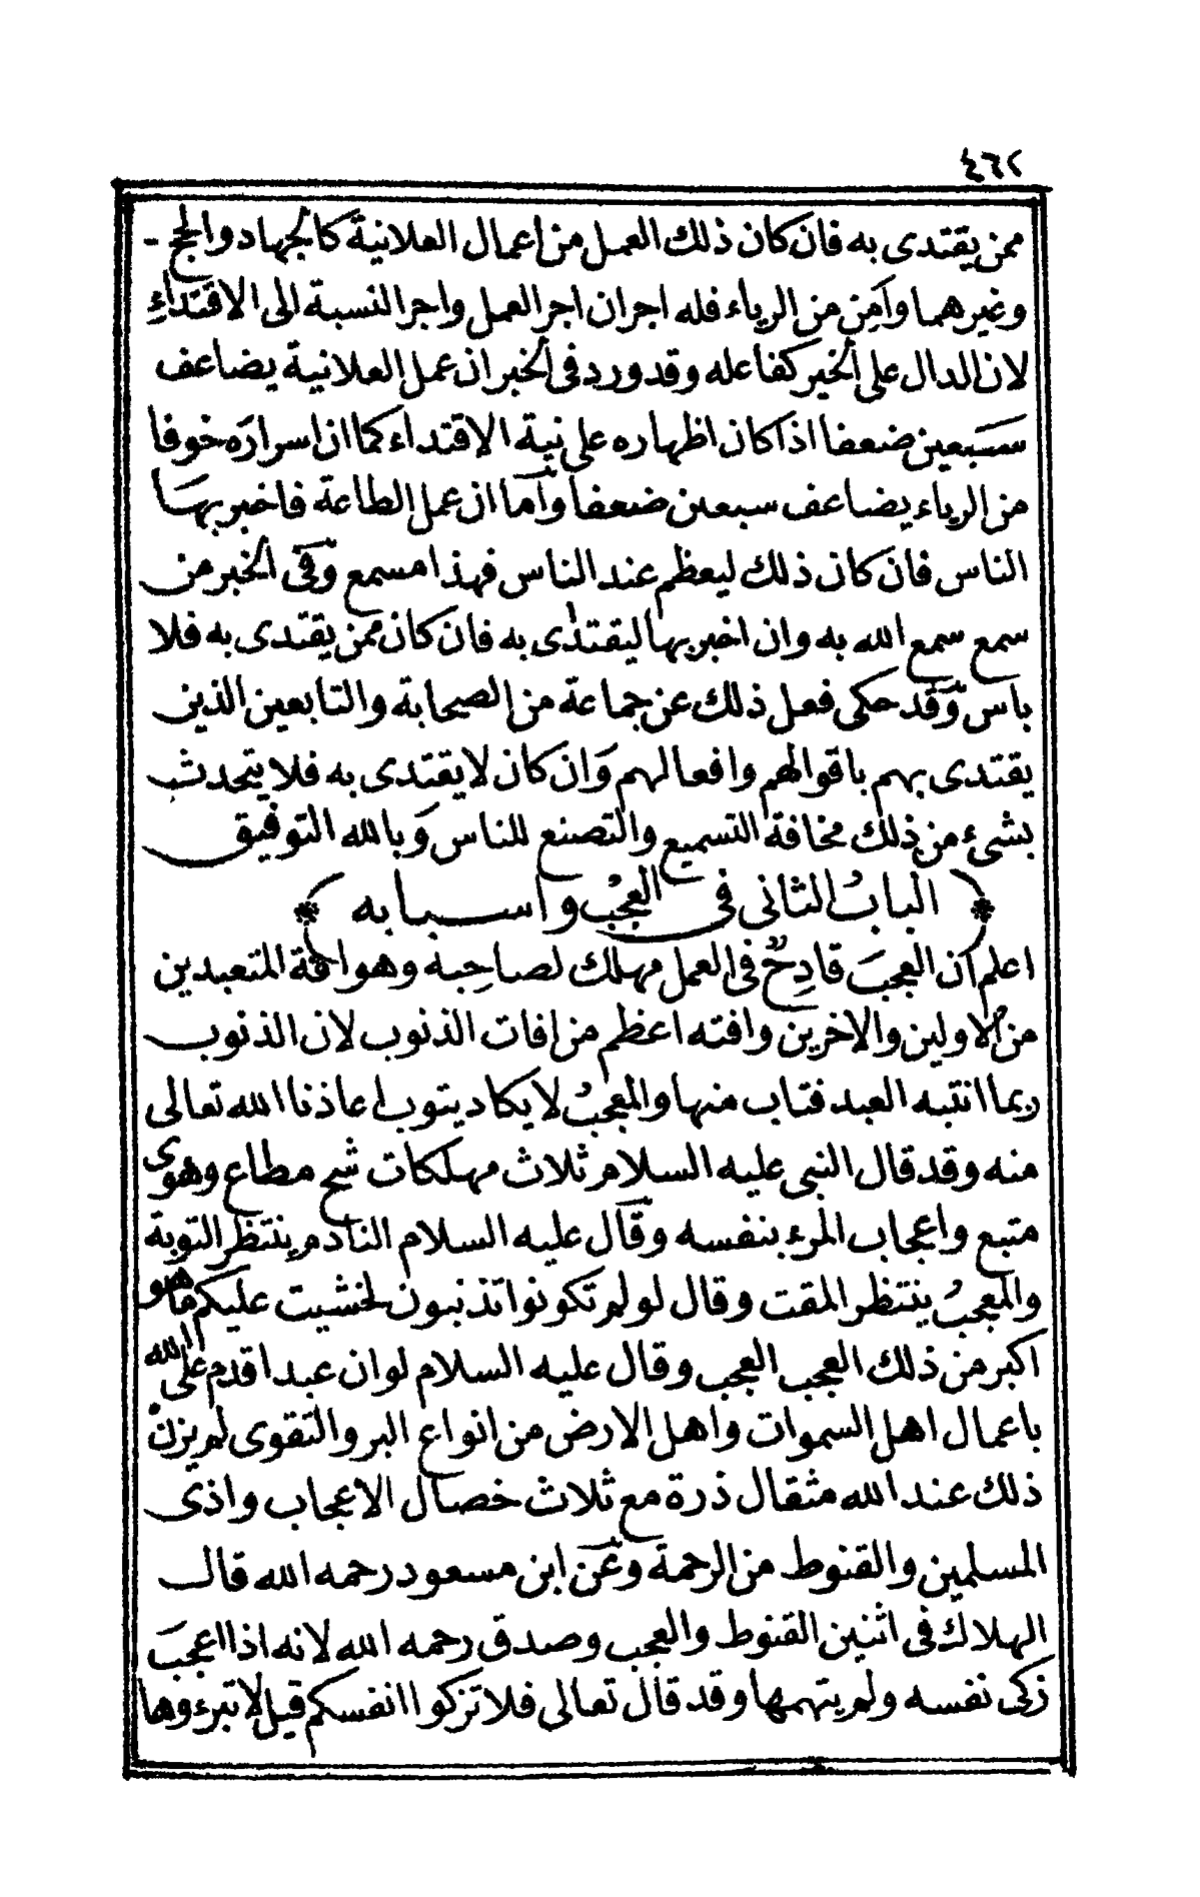 ٤٦٢
ممن يقتدى به فان كان ذلك العمل من اعمال العلانية كالجهاد والحج -
وغيرهما وامن من الرياء فله اجران اجر العمل واجر النسبة الى الاقتداءِ
لان الدال على الخير كفاعله وقد ورد فى الخبر ان عمل العلانية يضاعف
سبعين ضعفا اذا كان اظهاره على نية الاقتداء كما ان اسراره خوفا
من الرياء يضاعف سبعين ضعفا وأما ان عمل الطاعة فاخبر بها
الناس فان كان ذلك ليعظم عند الناس فهذا مسمع وفى الخبر من
سمع سمع الله به وان اخبر بها ليقتدى به فان كان ممن يقتدى به فلا
باس وقد حكى فعل ذلك عن جماعة من الصحابة والتابعين الذين
يقتدى بهم باقوالهم وافعالهم وَان كان لا يقتدى به فلا يتحدث
بشىء من ذلك مخافة التسميع والتصنع للناس وَبالله التوفيق
﴿ الباب الثانى فى العجب واسبابه ﴾
اعلم ان العجبَ قادِحٌ فى العمل مهلك لصاحِبه وهو افة المتعبدين
من الاولين والاخرين وافته اعظم من افات الذنوب لان الذنوب
ربما انتبه العبد فتاب منها والمعجبُ لا يكاد يتوب اعاذنا الله تعالى
منه وقد قال النبى عليه السلام ثلاث مهلكات شح مطاع وهوى
متبع واعجاب المرء بنفسه وقال عليه السلام النادم ينتظر التوبة
والمعجبُ ينتظر المقت وقال لو لم تكونوا تذنبون لخشيت عليكم ما هو
اكبر من ذلك العجب العجب وقال عليه السلام لو ان عبدا قدم على الله
باعمال اهل السموات واهل الارض من انواع البر والتقوى لم يزنْ
ذلك عند الله مثقال ذرة مع ثلاث خصال الاعجاب واذى
المسلمين والقنوط من الرحمة وعَن ابن مسعود رحمه الله قال
الهلاك فى اثنين القنوط والعجب وصدق رحمه الله لانه اذا اعجبَ
زكى نفسه ولم يتهمها وقد قال تعالى فلا تزكوا انفسكم قيل لا تبرءوها